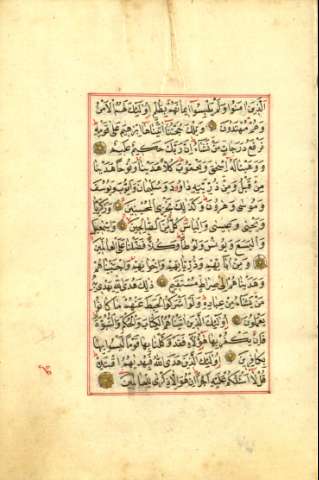 الَّذِينَ اٰمَنُوا وَلَمْ يَلْبِسُوا اِيمَانَهُمْ بِظُلْمٍ اُولٰئِكَ لَهُمُ الْاَمْنُ
وَهُمْ مُهْتَدُونَ وَتِلْكَ حُجَّتُنَا اٰتَيْنَاهَا اِبْرٰهِيمَ عَلٰى قَوْمِهِ
نَرْفَعُ دَرَجَاتٍ مَنْ نَشَاءُ اِنَّ رَبَّكَ حَكِيمٌ عَلِيمٌ
وَوَهَبْنَا لَهُ اِسْحٰقَ وَيَعْقُوبَ كُلًّا هَدَيْنَا وَنُوحًا هَدَيْنَا
مِنْ قَبْلُ وَمِنْ ذُرِّيَّتِهِ دَاوُدَ وَسُلَيْمَانَ وَاَيُّوبَ وَيُوسُفَ
وَمُوسٰى وَهٰرُونَ وَكَذٰلِكَ نَجْزِي الْمُحْسِنِينَ وَزَكَرِيَّا
وَيَحْيٰى وَعِيسٰى وَاِلْيَاسَ كُلٌّ مِنَ الصَّالِحِينَ وَاِسْمٰعِيلَ
وَالْيَسَعَ وَيُونُسَ وَلُوطًا وَكُلًّا فَضَّلْنَا عَلَى الْعَالَمِينَ
وَمِنْ اٰبَائِهِمْ وَذُرِّيَّاتِهِمْ وَاِخْوَانِهِمْ وَاجْتَبَيْنَاهُمْ
وَهَدَيْنَاهُمْ اِلٰى صِرَاطٍ مُسْتَقِيمٍ ذٰلِكَ هُدَى اللّٰهِ يَهْدِي بِهِ
مَنْ يَشَاءُ مِنْ عِبَادِهِ وَلَوْ اَشْرَكُوا لَحَبِطَ عَنْهُمْ مَا كَانُوا
يَعْمَلُونَ اُولٰئِكَ الَّذِينَ اٰتَيْنَاهُمُ الْكِتَابَ وَالْحُكْمَ وَالنُّبُوَّةَ
فَاِنْ يَكْفُرْ بِهَا هٰؤُلَاءِ فَقَدْ وَكَّلْنَا بِهَا قَوْمًا لَيْسُوا بِهَا
بِكَافِرِينَ اُولٰئِكَ الَّذِينَ هَدَى اللّٰهُ فَبِهُدٰيهُمُ اقْتَدِهْ
قُلْ لَا اَسْئَلُكُمْ عَلَيْهِ اَجْرًا اِنْ هُوَ اِلَّا ذِكْرٰى لِلْعَالَمِينَ